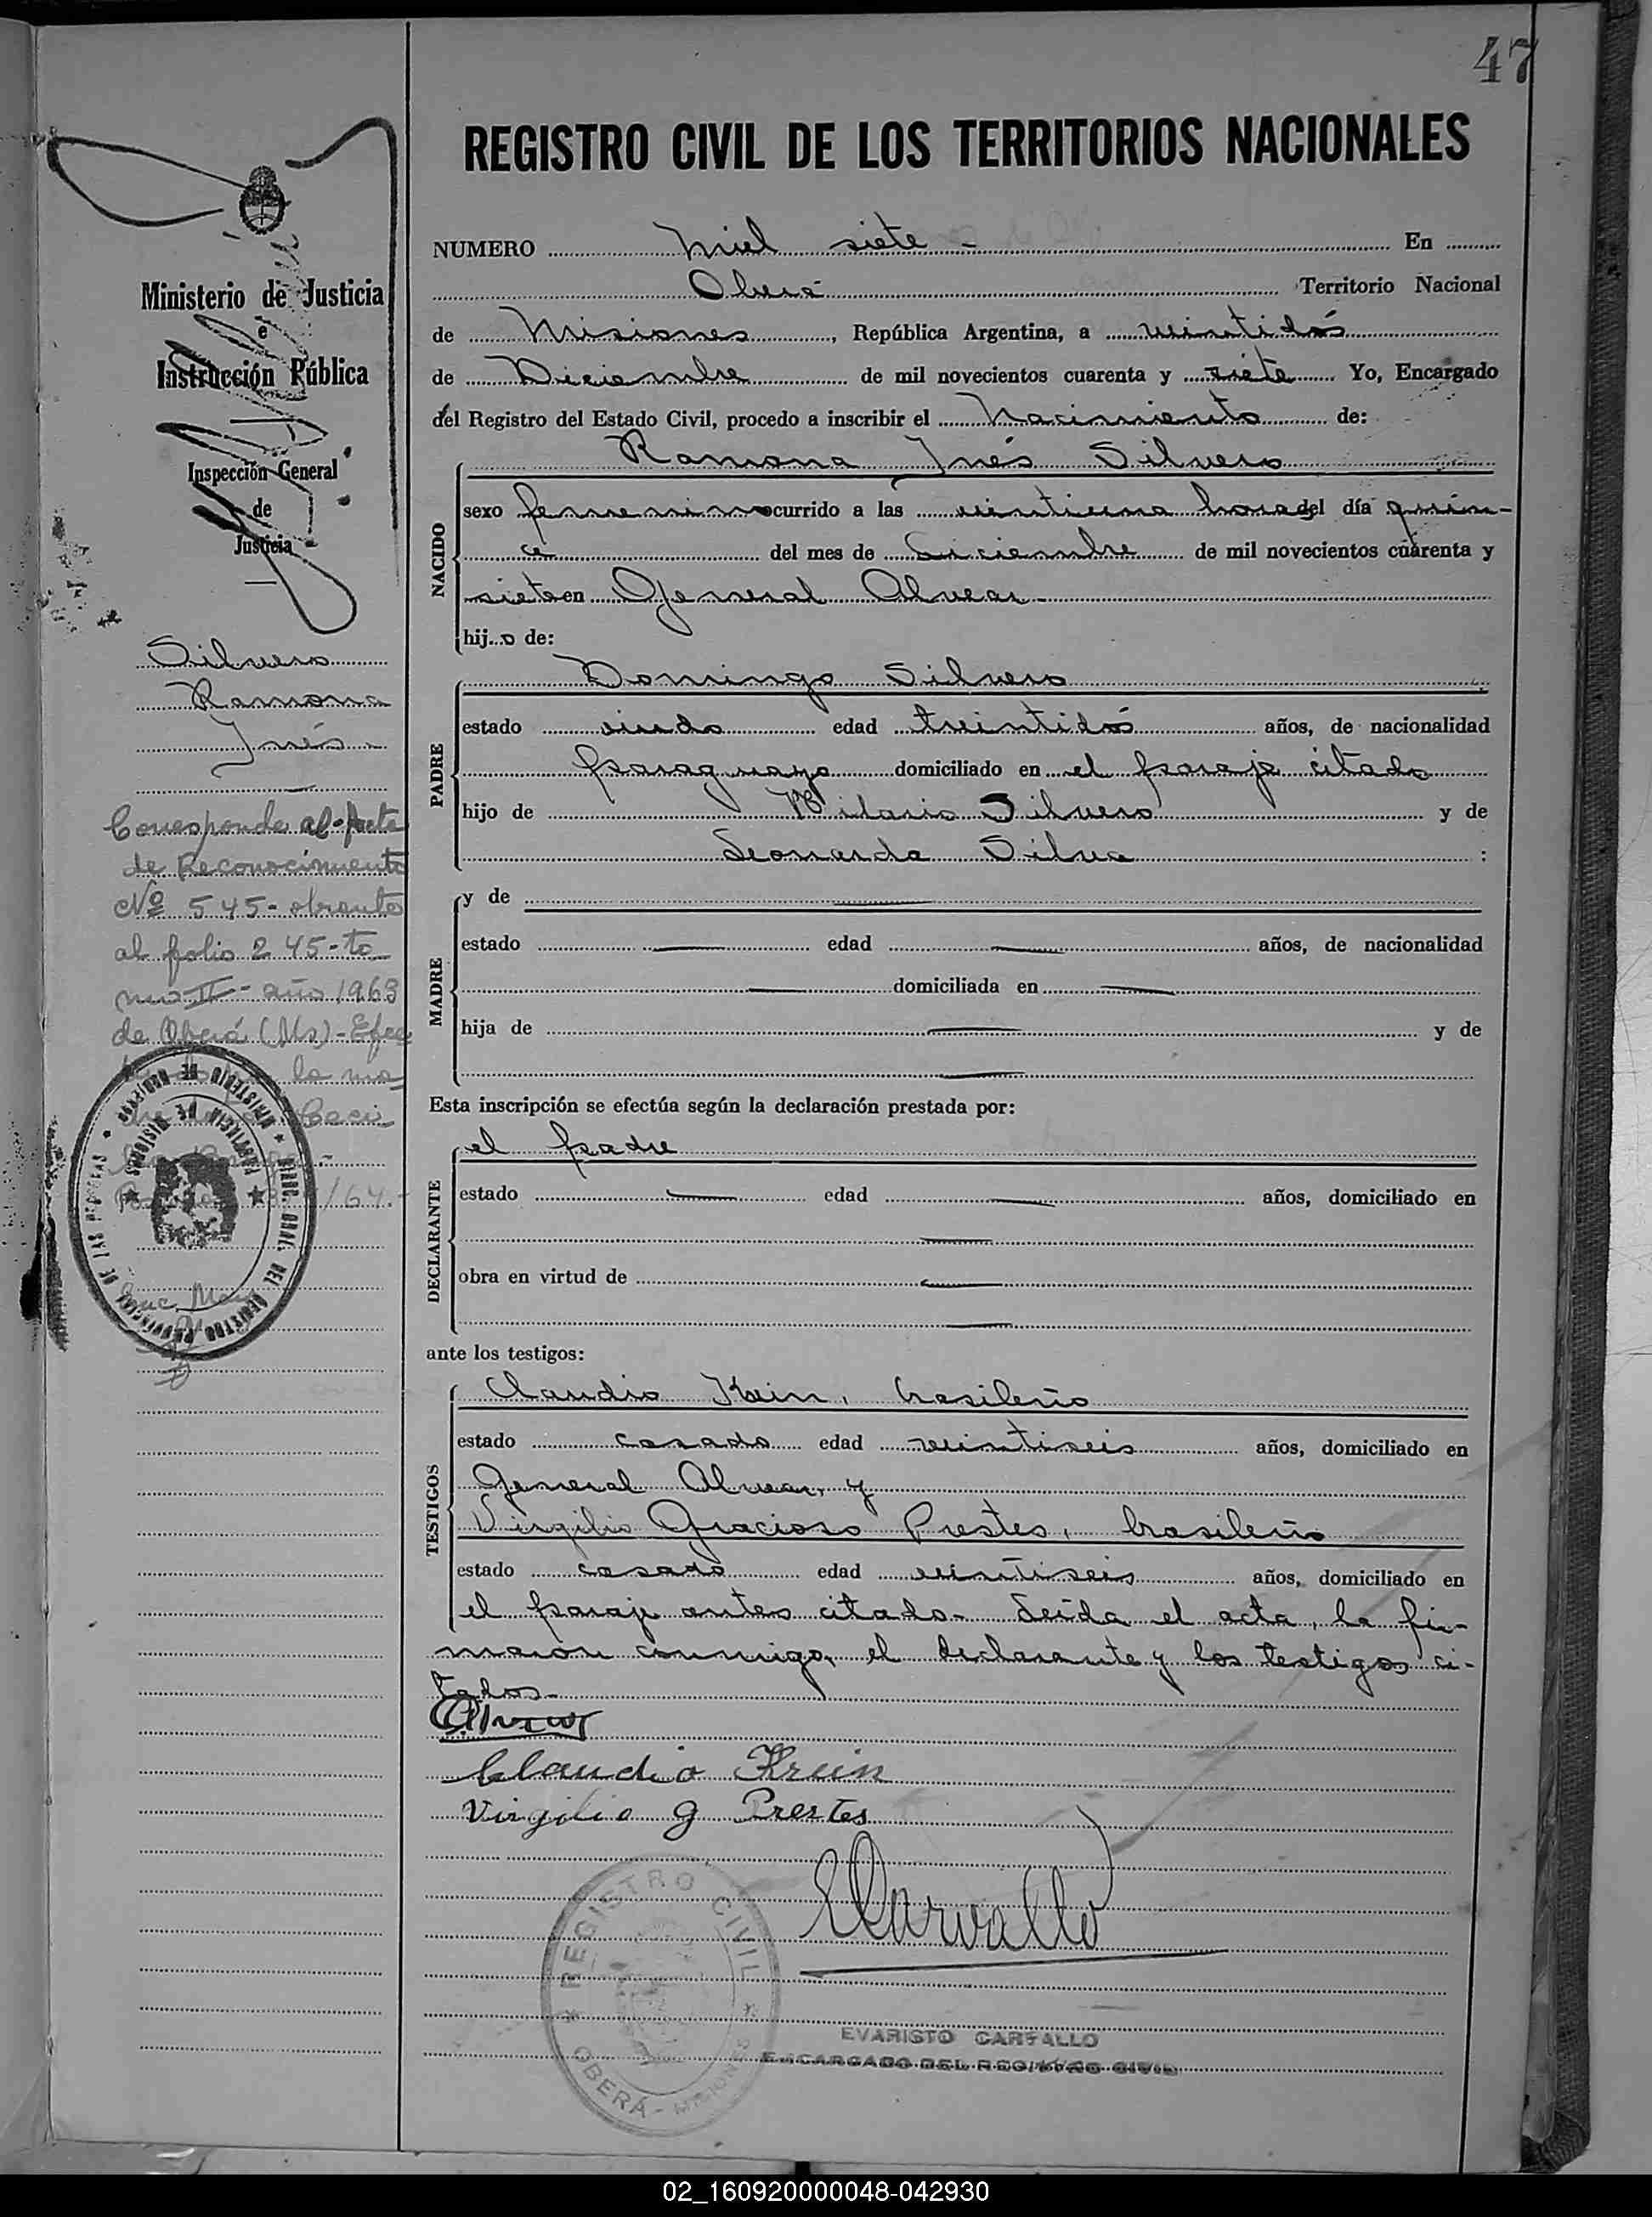 47
REGISTRO CIVIL DE LOS TERRITORIOS NACIONALES
NUMERO mil siete - En
Oberá Territorio Nacional
de Misiones, República Argentina, a veintidós
de Diciembre de mil novecientos cuarenta y siete Yo, Encargado
del Registro del Estado Civil, procedo a inscribir el Nacimiento de:
Ramona Inés Silvero
NACIDO
sexo femenino ocurrido a las veintiuna horas del día quin-
ce del mes de Diciembre de mil novecientos cuarenta y
siete en General Alvear -
hij..o de:
PADRE
Domingo Silvero
estado viudo edad treintidós años, de nacionalidad
paraguayo domiciliado en el paraje citado
hijo de Hilario Silvero y de
Leonarda Silva :
MADRE
y de —
estado — edad — años, de nacionalidad
— domiciliada en —
hija de — y de
—
Esta inscripción se efectúa según la declaración prestada por:
DECLARANTE
el padre
estado — edad — años, domiciliado en
—
obra en virtud de —
—
ante los testigos:
TESTIGOS
Claudio Krein, brasileño
estado casado edad veintiseis años, domiciliado en
General Alvear, y
Virgilio Gracioso Prestes, brasileño
estado casado edad veintiseis años, domiciliado en
el paraje antes citado - Leída el acta, la fir-
maron conmigo, el declarante y los testigos ci-
tados -
Claudio Krein
Virgilio G Prestes
ECarvallo
REGISTRO CIVIL
OBERÁ - MISIONES
EVARISTO CARVALLO
ENCARGADO DEL REGISTRO CIVIL
Ministerio de Justicia
e
Instrucción Pública
Inspección General
de
Justicia
Silvero
Ramona
Inés -
Corresponde al Acta
de Reconocimiento
Nº 545 - obrante
al folio 245 - to
mo II - año 1963
de Oberá (Ms) - Efec
la ma
/64.-
DIREC. GRAL. DEL REGISTRO PROVINCIAL DE LAS PERSONAS
MINISTERIO DE GOBIERNO
PROVINCIA DE MISIONES
02_160920000048-042930